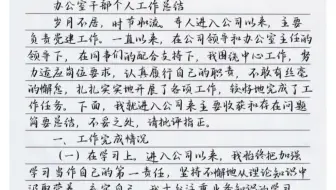 办公室干部个人工作总结
岁月不居，时节如流。本人进入公司以来，主要
负责党建工作。一直以来，在公司领导和办公室主任的
领导下，在同事们的配合支持下，我围绕中心工作，努
力适应岗位要求，认真履行自己的职责，不敢有丝毫
的懈怠，扎扎实实地开展了各项工作，较好地完成了工
作任务。下面，我就进入公司来主要收获和存在问题
简要总结，不妥之处，请批评指正。
一、工作完成情况
（一）在学习上。进入公司以来，我始终把加强
学习当作自己的第一责任，坚持不懈地从理论知识中